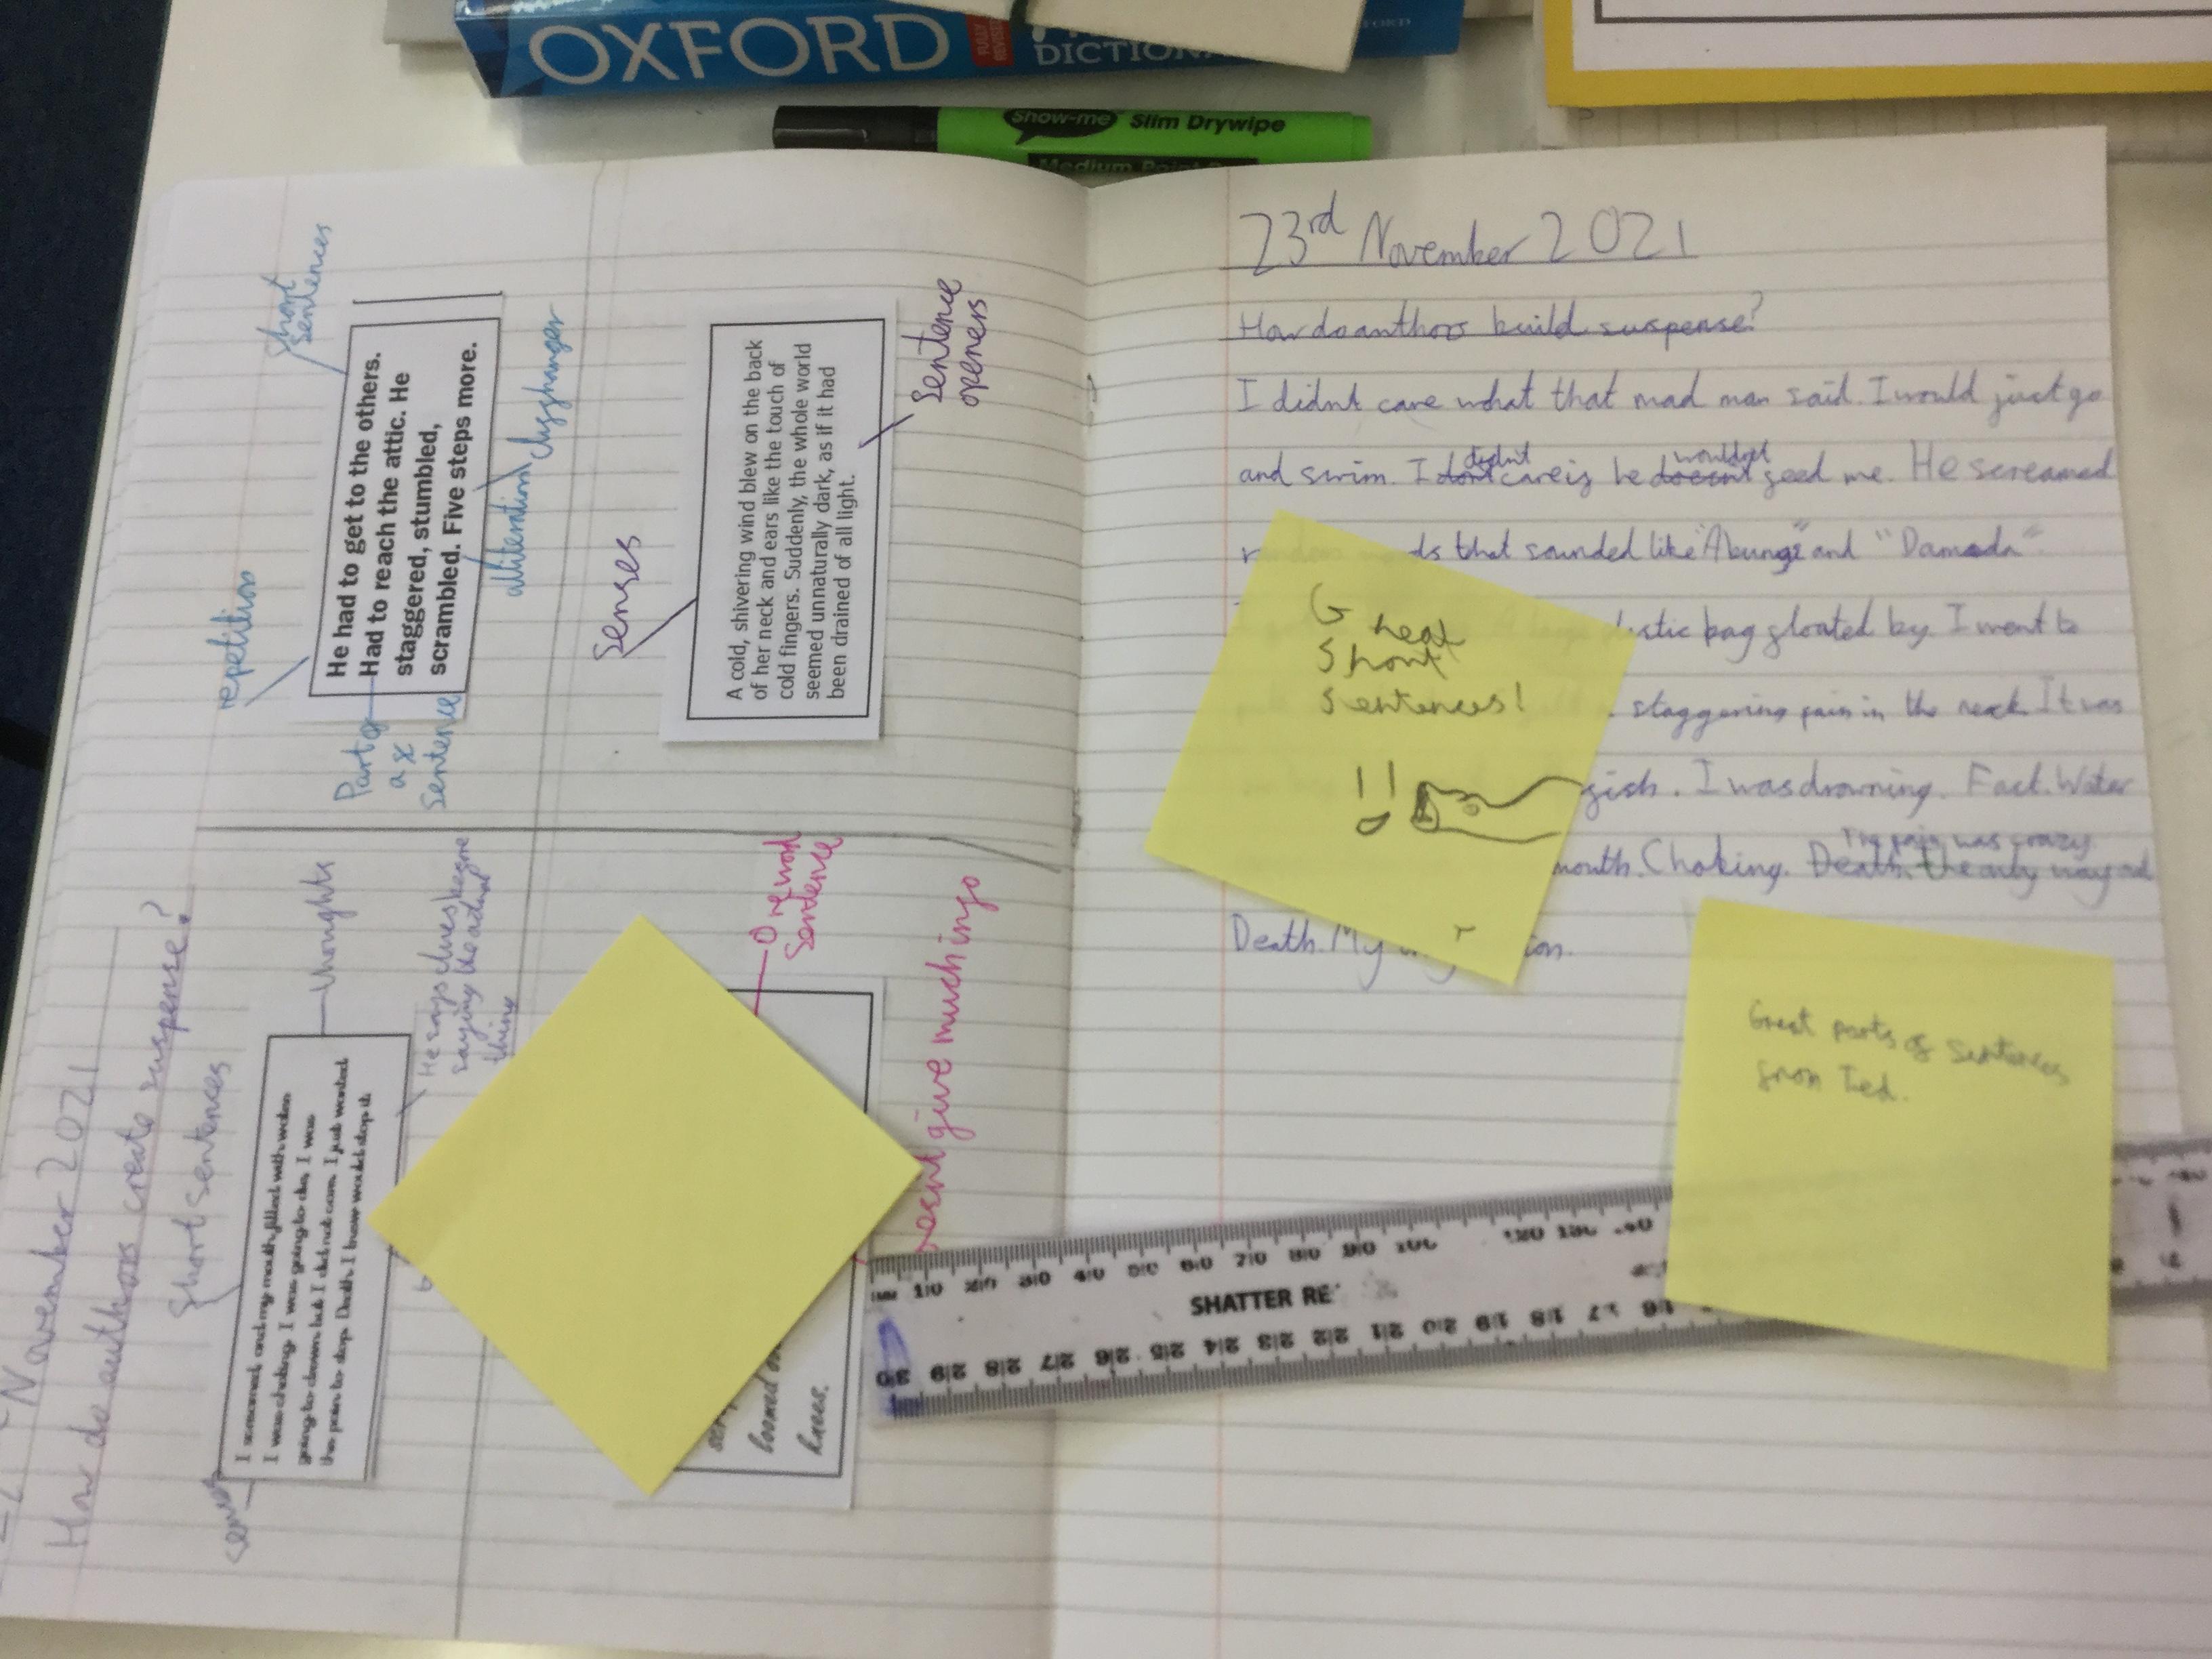 OXFORD
FULLY
REVISED
DICTIONA
Show-me Slim Drywipe
Medium Point
November 2021
How do authors create suspense?
Short sentences
senses
thoughts
I screamed, and my mouth filled with water.
I was choking. I was going to die. I was
going to drown but I did not care. I just wanted
this pain to stop. Death. I knew would stop it.
He says clues before
saying the actual
thing
repetition
short
sentences
He had to get to the others.
Had to reach the attic. He
staggered, stumbled,
scrambled. Five steps more.
Part of
a
sentence
alliteration
clyffhanger
senses
A cold, shivering wind blew on the back
of her neck and ears like the touch of
cold fingers. Suddenly, the whole world
seemed unnaturally dark, as if it had
been drained of all light.
Sentence
openers
One word
sentence
loomed
knees.
give much info
23rd November 2021
How do authors build suspense?
I didnt care what that mad man said. I would just go
didn't wouldn't
and swim. I dont care if he doesn't feed me. He screamed
ds that sounded like "Abunge" and "Damada".
bag floated by. I went to
staggering pain in the neck. It was
fish. I was drowning. Fact. Water
The pain was crazy.
mouth. Choking. Death. the only way out
Death. My
Great
Short
Sentences!
!!
Great parts of sentences
from Ted.
MM 10 20 30 40 50 60 70 80 90 100 120 130 40
SHATTER RE
30 29 28 27 26 25 24 23 22 21 20 19 18 17 16